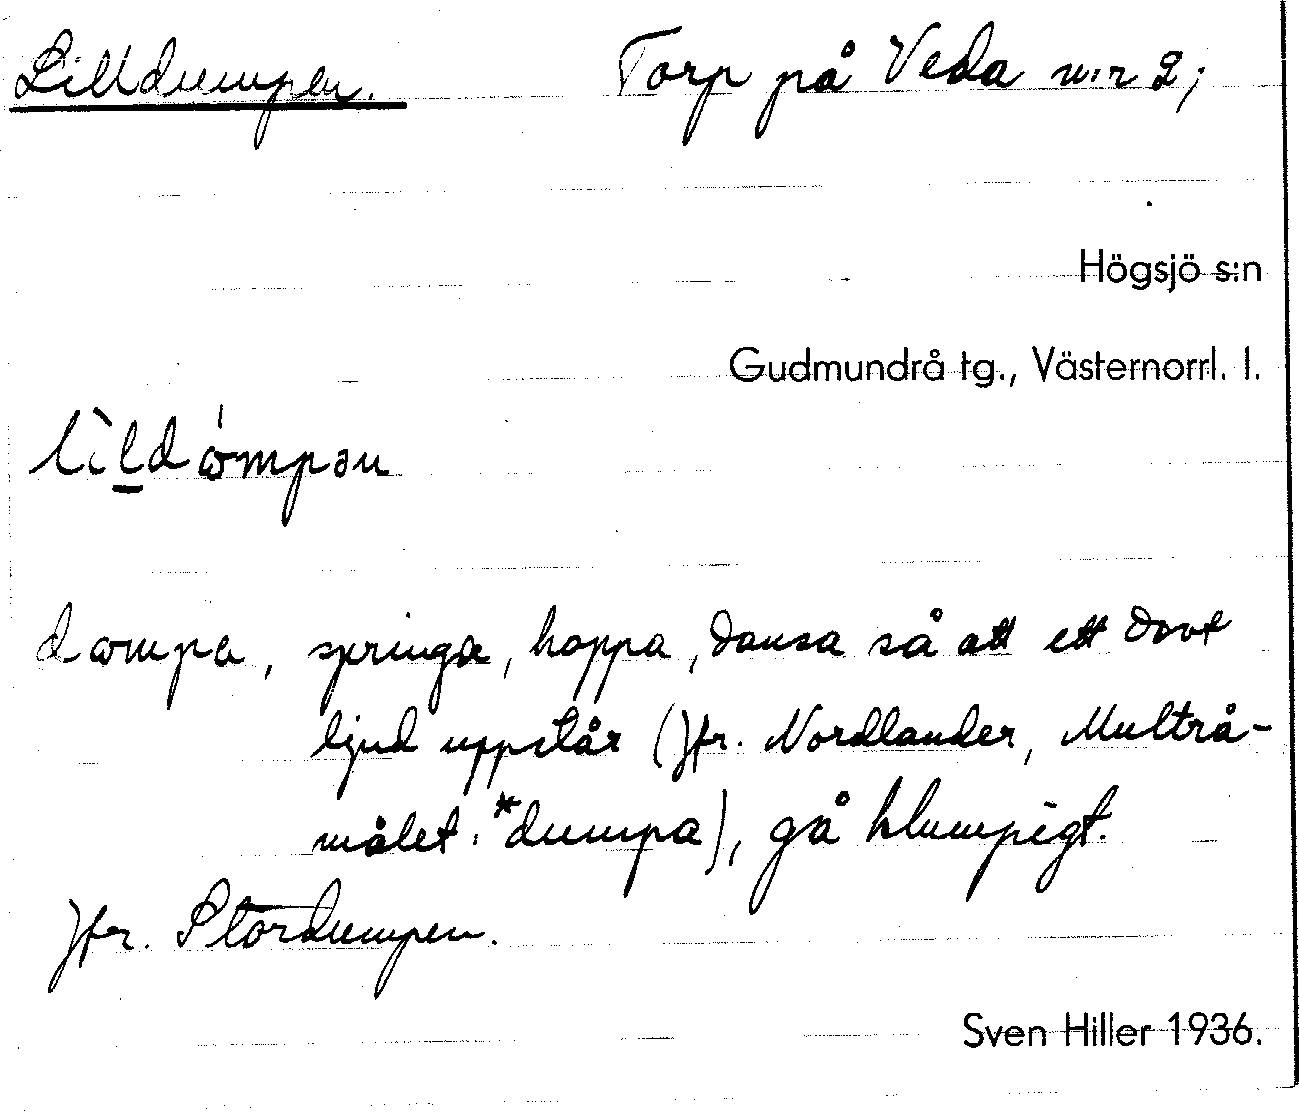 Lilldumpen. Torp på Veda n:r 2;
Högsjö s:n
Gudmundrå tg., Västernorrl. l.
lìldómpən
dompa, springa, hoppa, dansa så att ett dovt
ljud uppstår (Jfr. Nordlander, Multrå-
målet: *dumpa), gå klumpigt.
Jfr. Stordumpen.
Sven Hiller 1936.